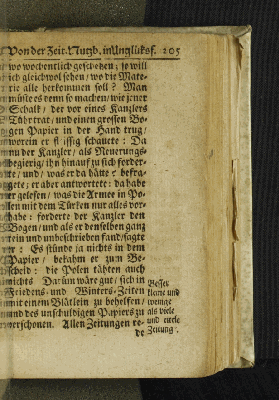 Von der Zeit-Nutzb. in Unglüksf. 105
wo wochentlich geschehen; so will
ich gleichwol sehen / wo die Mate-
rie alle herkommen soll? Man
müste es denn so machen / wie jener
Schalk / der vor eines Kanzlers
Tühr trat / und einen grossen Bo-
gen Papier in der Hand trug /
worein er fleissig schauete: Da
nu der Kanzler / als Neuerungs-
begierig / ihn hinauf zu sich forder-
te / und / was er da hätte? befra-
gete; er aber antwortete: da habe
er gelesen / was die Armee in Po-
len mit dem Türken nur alles vor-
habe: forderte der Kanzler den
Bogen / und als er denselben ganz
rein und unbeschrieben fand / sagte
er: Es stünde ja nichts in dem
Papier / bekahm er zum Be-
scheid: die Polen tähten auch
nichts Darüm wäre gut / sich in
Friedens- und Winters-Zeiten
mit einem Blätlein zu behelfen /
und des unschuldigen Papiers zu
verschonen. Allen Zeitungen re-
de
Besser
kleine und
wenige
als viele
und eitele
Zeitung.